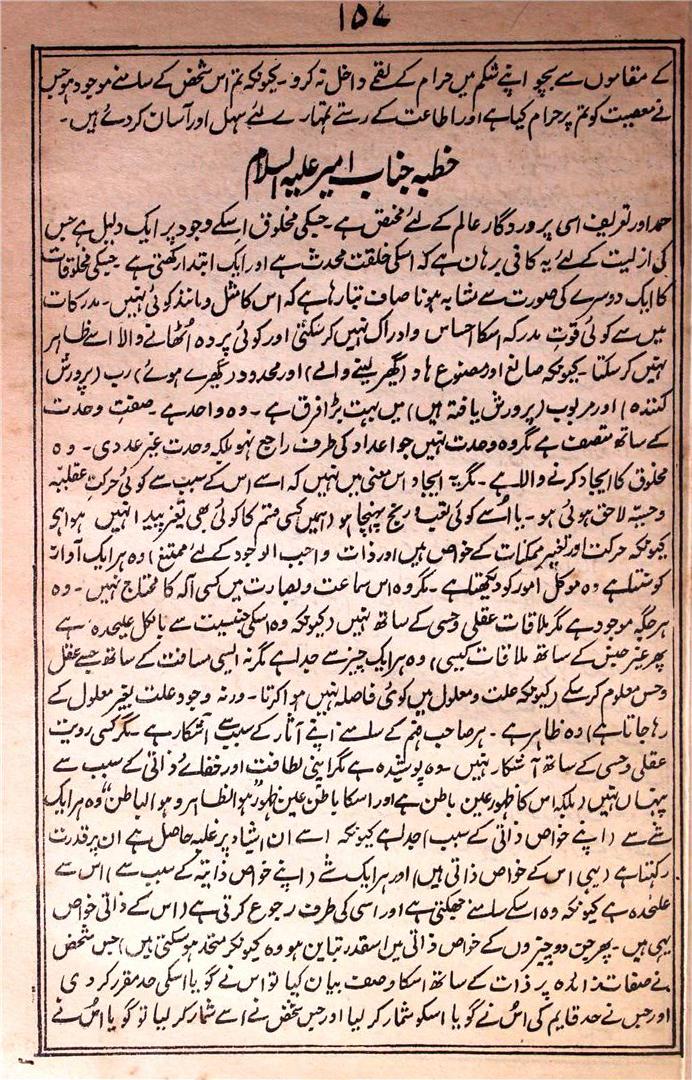 ۱۵۷
کے مقاموں سے بچو اپنے شکم میں حرام کے لقمے داخل نہ کرو۔ کیونکہ تم اس شخص کے سامنے موجود ہو جس
نے معصیت کو تم پر حرام کیا ہے اور اطاعت کے رستے تمہارے لئے سہل اور آسان کردئے ہیں۔
خطبہ جناب امیر علیہ السلام
حمد اور تعریف اسی پروردگار عالم کے لئے مختص ہے۔ جسکی مخلوق اسکے وجود پر ایک دلیل ہے جس
کی ازلیت کے لئے یہ کافی برہان ہے کہ اسکی خلقت محدث ہے اور ایک ابتدا رکھتی ہے۔ جسکی مخلوقات
کا ایک دوسرے کی صورت سے مشابہ ہونا صاف بتا رہا ہے کہ اس کا مثل و مانند کوئی نہیں۔ مدرکات
میں سے کوئی قوت مدرکہ اسکا احساس و ادراک نہیں کرسکتی اور کوئی پردہ اٹھانے والا اسے ظاہر
نہیں کرسکتا۔ کیونکہ صانع اور مصنوع حاد (گھیر لینے والے) اور محدود (گھرے ہوئے) رب (پرورش
کنندہ) اور مربوب (پرورش یافتہ ہیں) میں بہت بڑا فرق ہے۔ وہ واحد ہے۔ صفت وحدت
کے ساتھ متصف ہے مگر وہ وحدت نہیں جو اعداد کی طرف راجع ہو بلکہ وحدت غیر عددی۔ وہ
مخلوق کا ایجاد کرنے والا ہے۔ مگر یہ ایجاد اس معنی میں نہیں کہ اسے اس کے سبب سے کوئی حرکت عقلیہ
و حسیہ لاحق ہوئی ہو۔ یا اُسے کوئی تعب و رنج پہنچا ہو (ہمیں کسی قسم کا کوئی بھی تغیر پیدا نہیں ہوا ہو
کیونکہ حرکت اور تغیر ممکنات کے خواص ہیں اور ذات واجب الوجود کے لئے ممتنع) وہ ہر ایک آواز
کو سنتا ہے وہ موکل امور کو دیکھتا ہے۔ مگر وہ اس سماعت و بصارت میں کسی آلہ کا محتاج نہیں۔ وہ
ہر جگہ موجود ہے مگر ملاقات عقلی و حسی کے ساتھ نہیں (کیونکہ وہ اسکی جنسیت سے بالکل علیحدہ ہے
پھر غیر جنس کے ساتھ ملاقات کیسی) وہ ہر ایک چیز سے جدا ہے مگر نہ ایسی مسافت کے ساتھ جسے عقل
و حس معلوم کرسکے (کیونکہ علت و معلول میں کوئی فاصلہ نہیں ہوا کرتا۔ ورنہ وجود علت بغیر معلول کے
رہا جاتا ہے) وہ ظاہر ہے۔ ہر صاحب فہم کے سامنے اپنے آثار کے سبب سے آشکار ہے۔ مگر کسی رویت
عقلی و حسی کے ساتھ آشکار نہیں۔ وہ پوشیدہ ہے مگر اپنی لطافت اور خفائے ذاتی کے سبب سے
پنہاں نہیں (بلکہ اس کا ظہور عین باطن ہے اور اسکا باطن عین ظہور ہو الظاہر و ہو الباطن) وہ ہر ایک
شے سے (اپنے خواص ذاتی کے سبب) جدا ہے کیونکہ اسے ان اشیاء پر غلبہ حاصل ہے ان پر قدرت
رکھتا ہے (یہی اس کے خواص ذاتی ہیں) اور ہر ایک شے (اپنے خواص ذاتیہ کے سبب سے) اس سے
علیحدہ ہے کیونکہ وہ اسکے سامنے جھکتی ہے اور اسی کی طرف رجوع کرتی ہے (اس کے ذاتی خواص
یہی ہیں۔ پھر جن دو چیزوں کے خواص ذاتی میں اسقدر تباین ہو وہ کیونکر متحد ہوسکتی ہیں) جس شخص
نے صفات زائدہ بر ذات کے ساتھ اسکا وصف بیان کیا تو اس نے گویا اسکی حد مقرر کردی
اور جس نے حد قایم کی اُس نے گویا اسکو شمار کر لیا اور جس شخص نے اسے شمار کر لیا تو گویا اُس نے